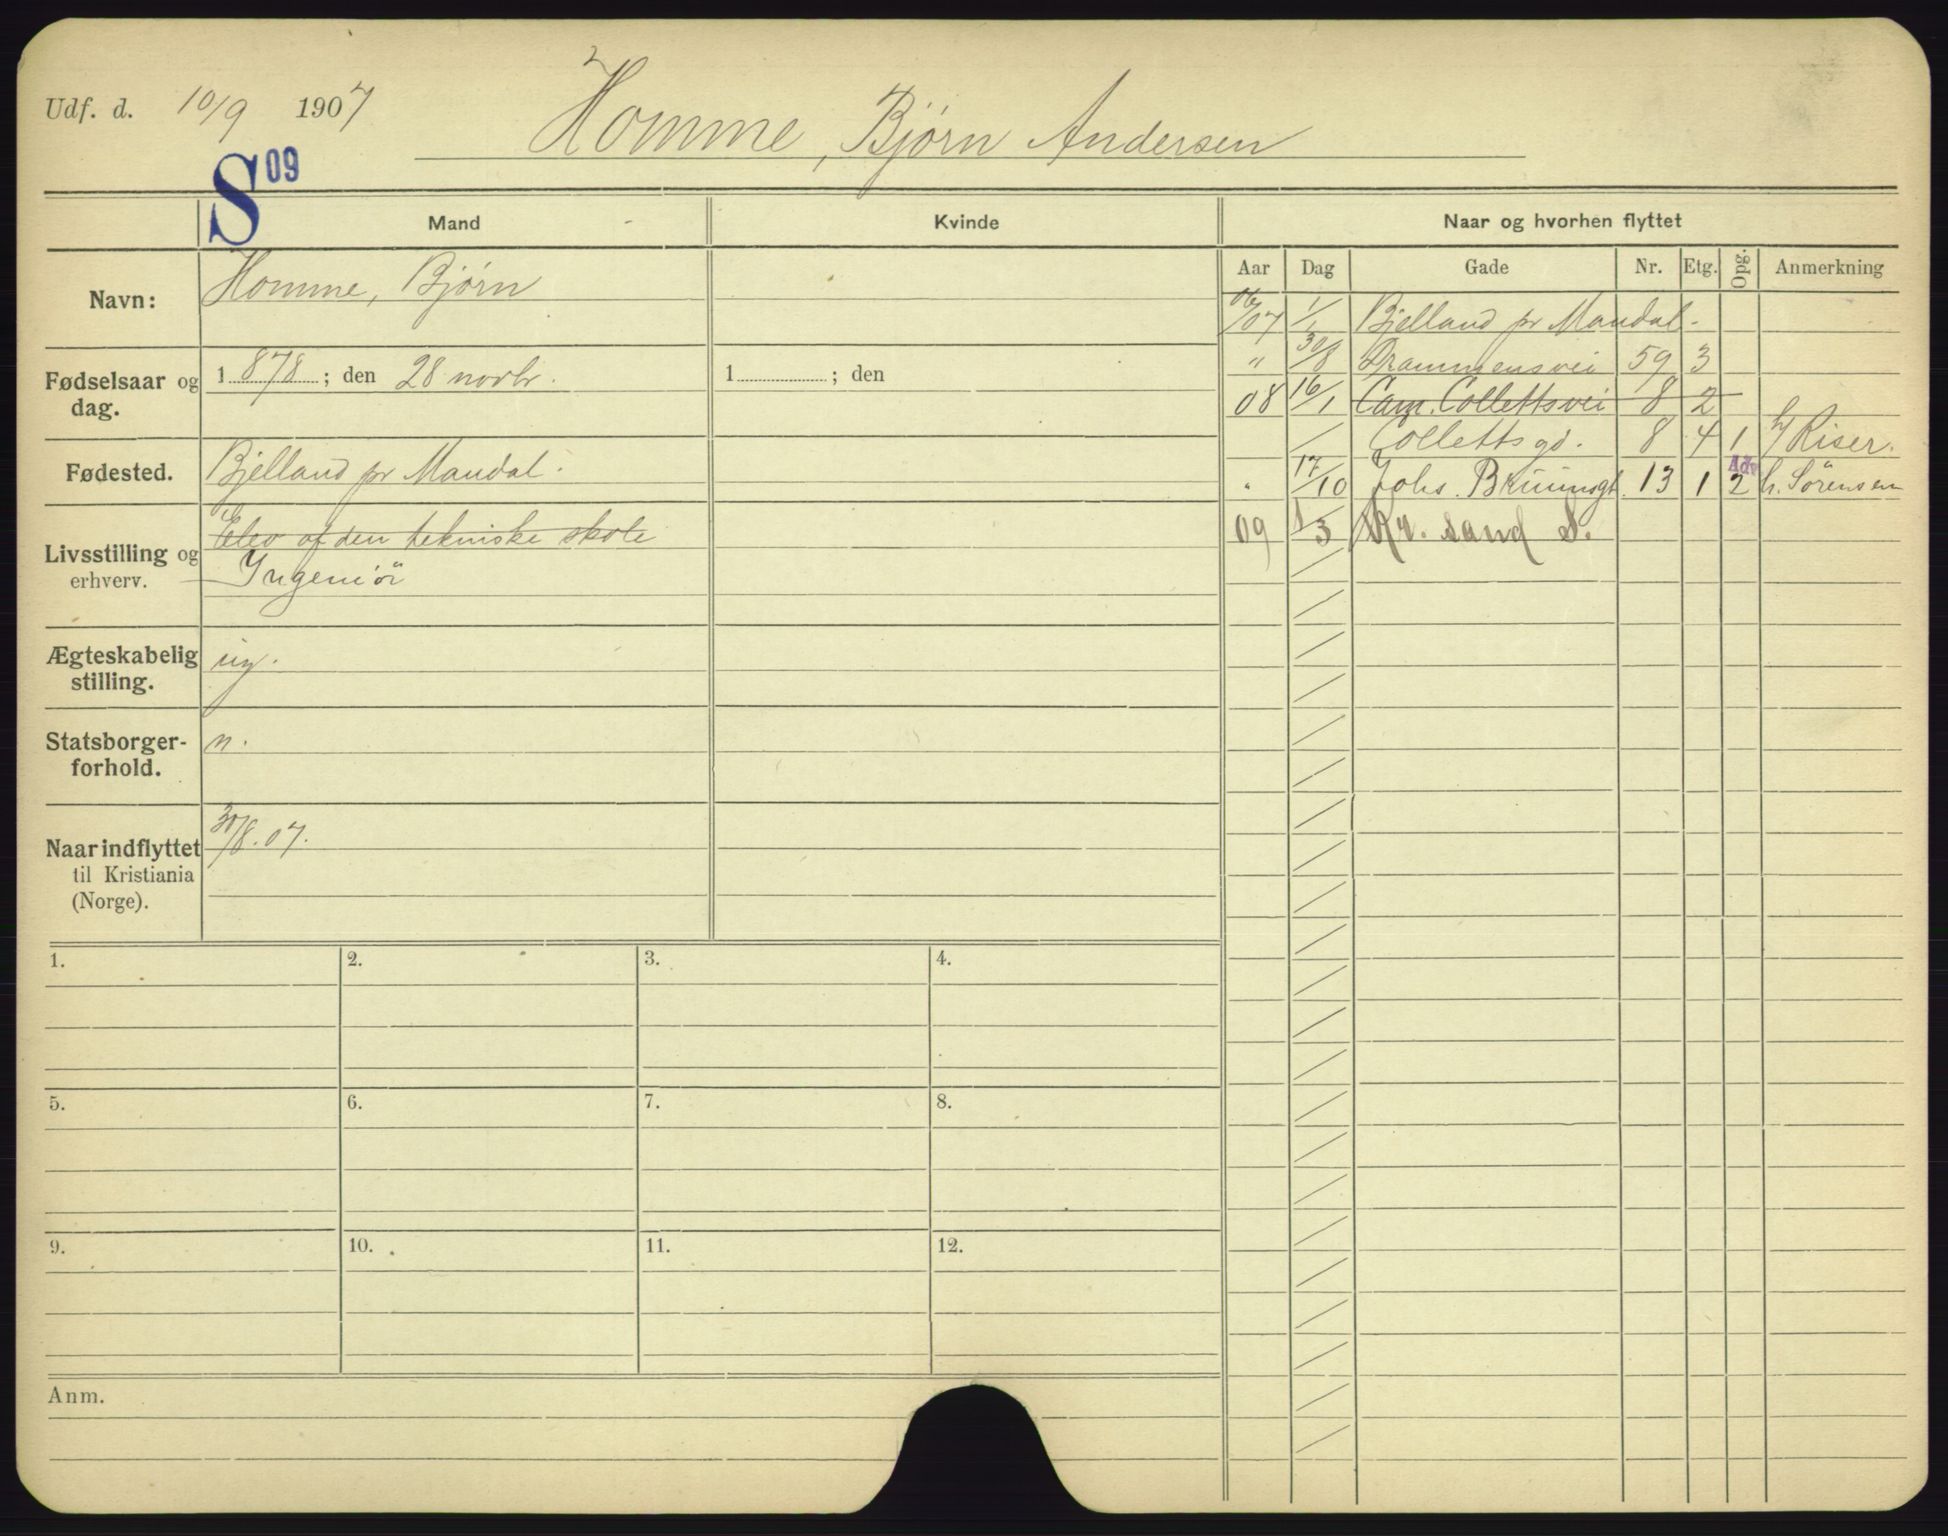 Udf. d. 10/9 1907
Homme, Bjørn Andersen
S 09
Mand
Kvinde
Naar og hvorhen flyttet
Navn:
Homme, Bjørn
Fødselsaar og dag.
1 878 ; den 28 novbr.
1 ; den
Fødested.
Bjelland pr Mandal.
Livsstilling og erhverv.
Elev af den tekniske skole
Ingeniør
Ægteskabelig stilling.
ug.
Statsborger-forhold.
n.
Naar indflyttet til Kristiania (Norge).
30/8.07.
Aar Dag Gade Nr. Etg. Opg. Anmerkning
06/07 1/1 Bjelland pr Mandal.
" 30/8 Drammensvei 59 3
08 16/1 Cam. Collettsvei 8 2
/ Collettsgd. 8 4 1 h/ Riser.
" 17/10 Johs. Bruunsgt. 13 1 2 Adv h. Sörensen
09 1/3 Kr. sand S.
1. 2. 3. 4.
5. 6. 7. 8.
9. 10. 11. 12.
Anm.